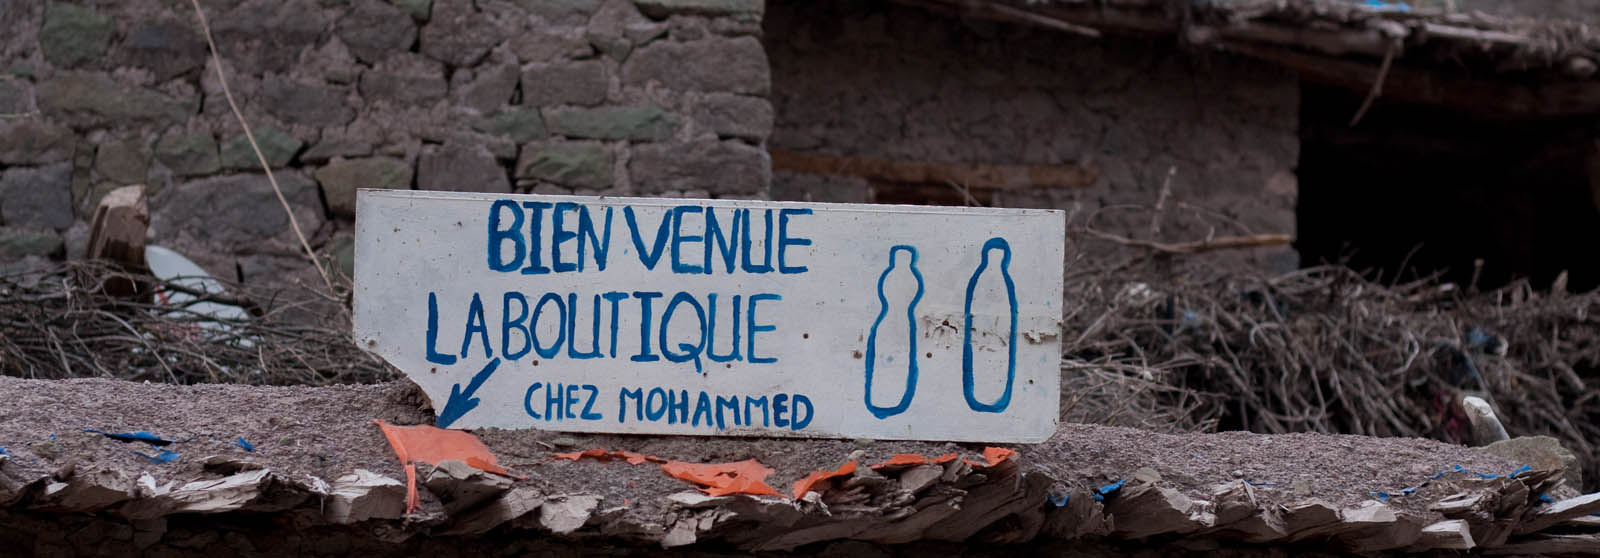 BIENVENUE
LA BOUTIQUE
CHEZ MOHAMMED